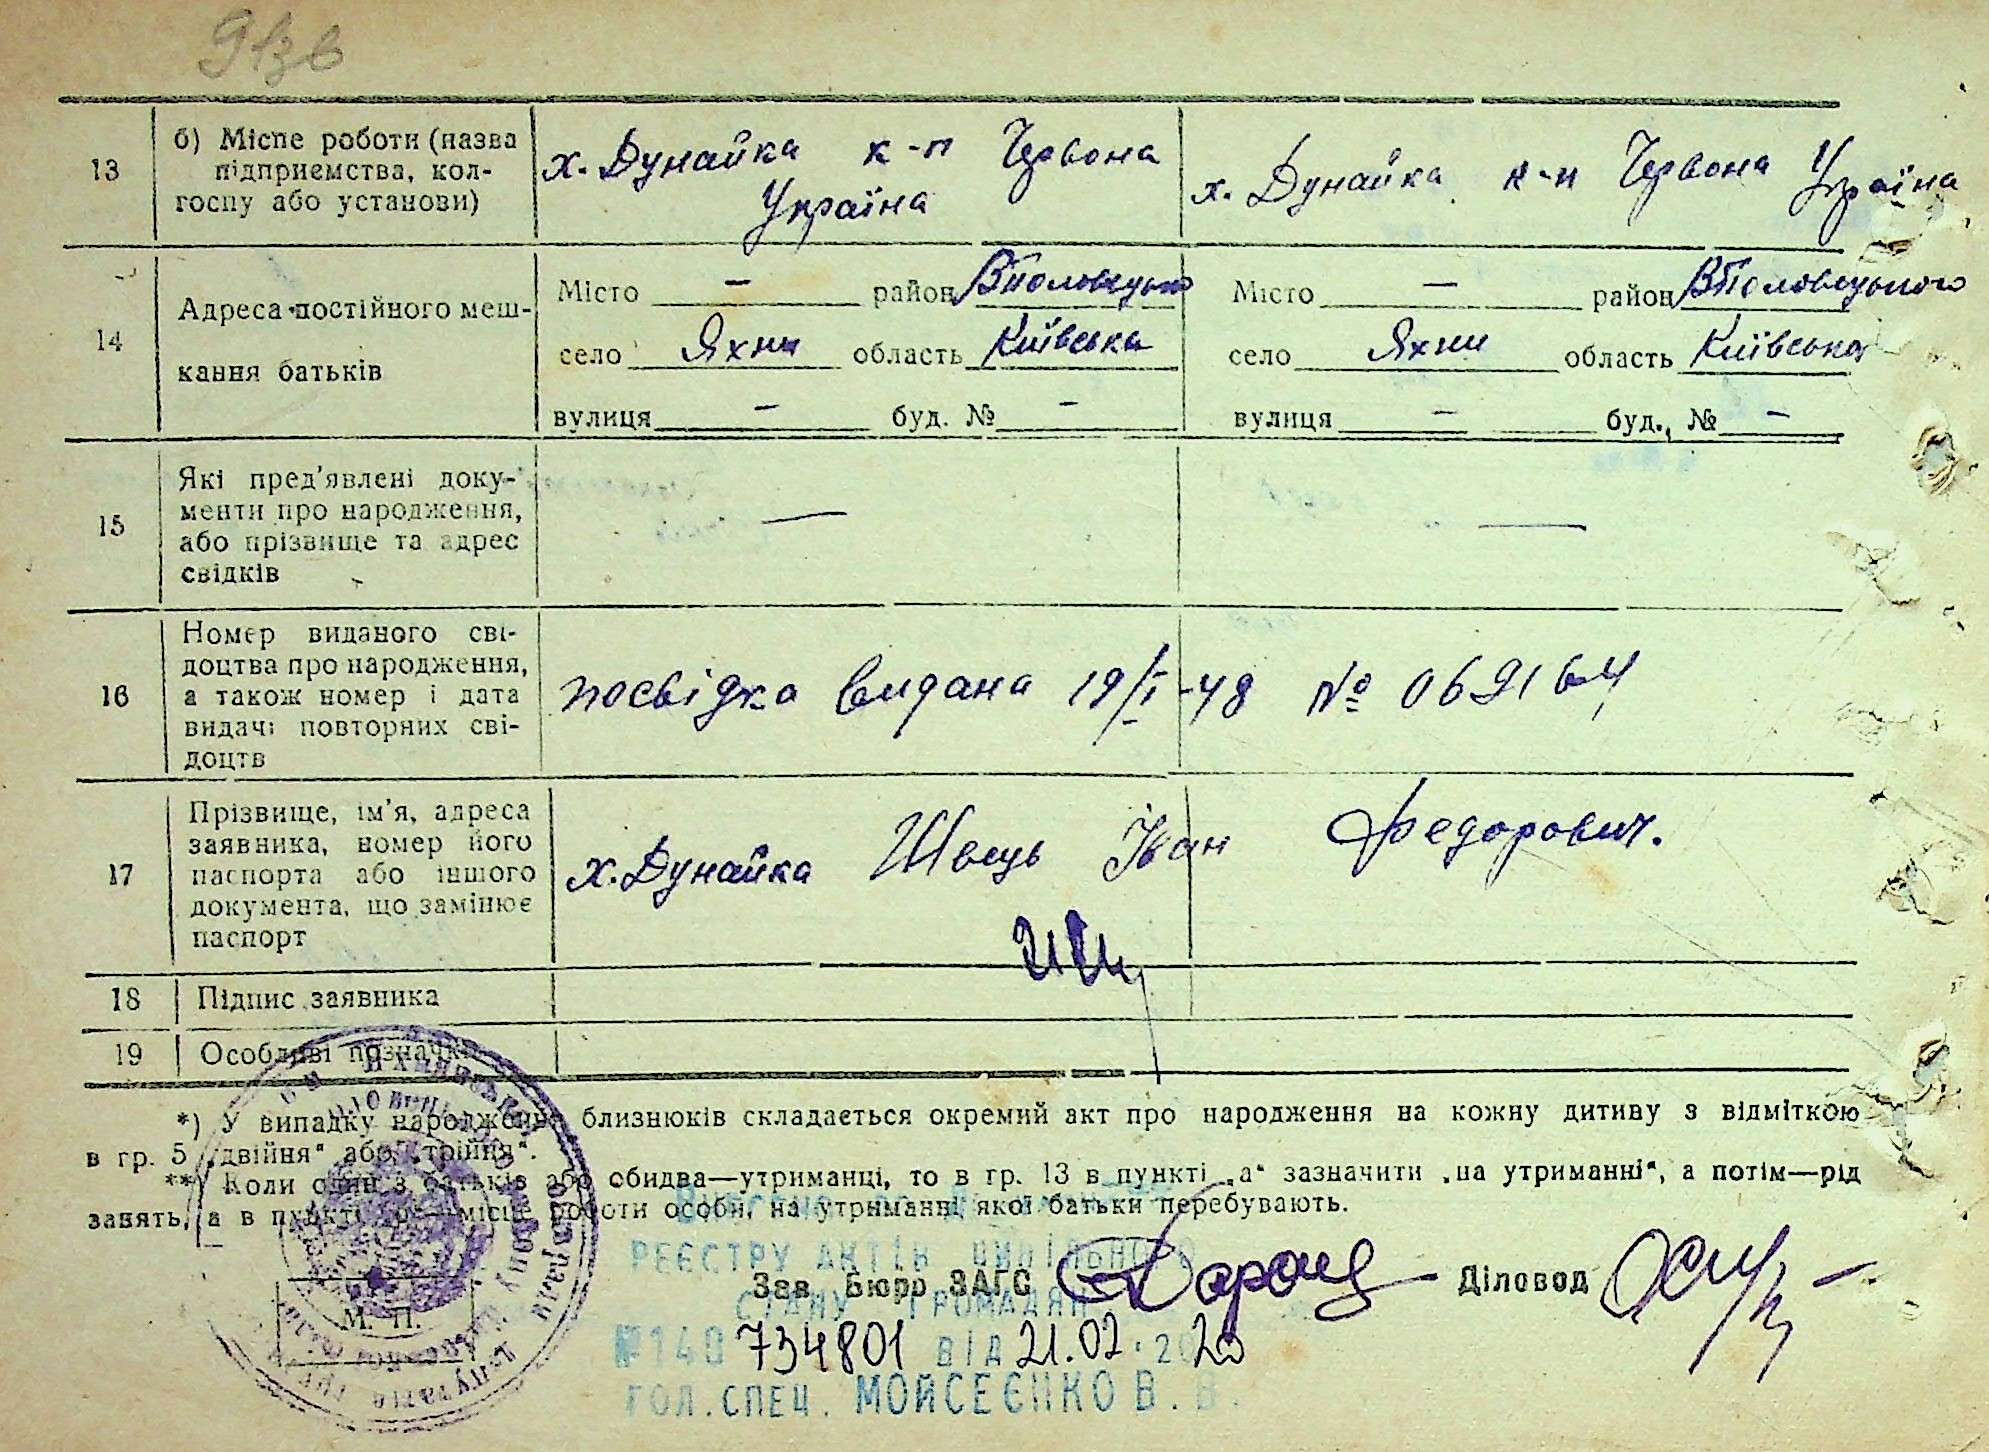 91зв
13
б) Місце роботи (назва
підприємства, кол-
госпу або установи)
х. Дунайка к-п Червона
Україна
х. Дунайка к-п Червона Україна
14
Адреса постійного меш-
кання батьків
Місто — район ВПоловецько
село Яхни область Київська
вулиця — буд. № —
Місто — район ВПоловецького
село Яхни область Київська
вулиця — буд. № —
15
Які пред'явлені доку-
менти про народження,
або прізвище та адрес
свідків
—
—
16
Номер виданого сві-
доцтва про народження,
а також номер і дата
видачі повторних сві-
доцтв
посвідка видана 19/I-48 № 069164
17
Прізвище, ім'я, адреса
заявника, номер його
паспорта або іншого
документа, що замінює
паспорт
х. Дунайка Швець Іван Федорович.
18 Підпис заявника
19 Особливі позначки
*) У випадку народження близнюків складається окремий акт про народження на кожну дитину з відміткою
в гр. 5 „двійня“ або „трійня“.
**) Коли один з батьків або обидва—утриманці, то в гр. 13 в пункті „а“ зазначити „на утриманні“, а потім—рід
занять, а в пункті місце роботи особи, на утриманні якої батьки перебувають.
РЕЄСТРУ АКТІВ ЦИВІЛЬНОГО
Зав. Бюро ЗАГС Діловод
СТАНУ ГРОМАДЯН
М. П.
№140 734801 від 21.02.2020
ГОЛ.СПЕЦ. МОЙСЕЄНКО В.В.